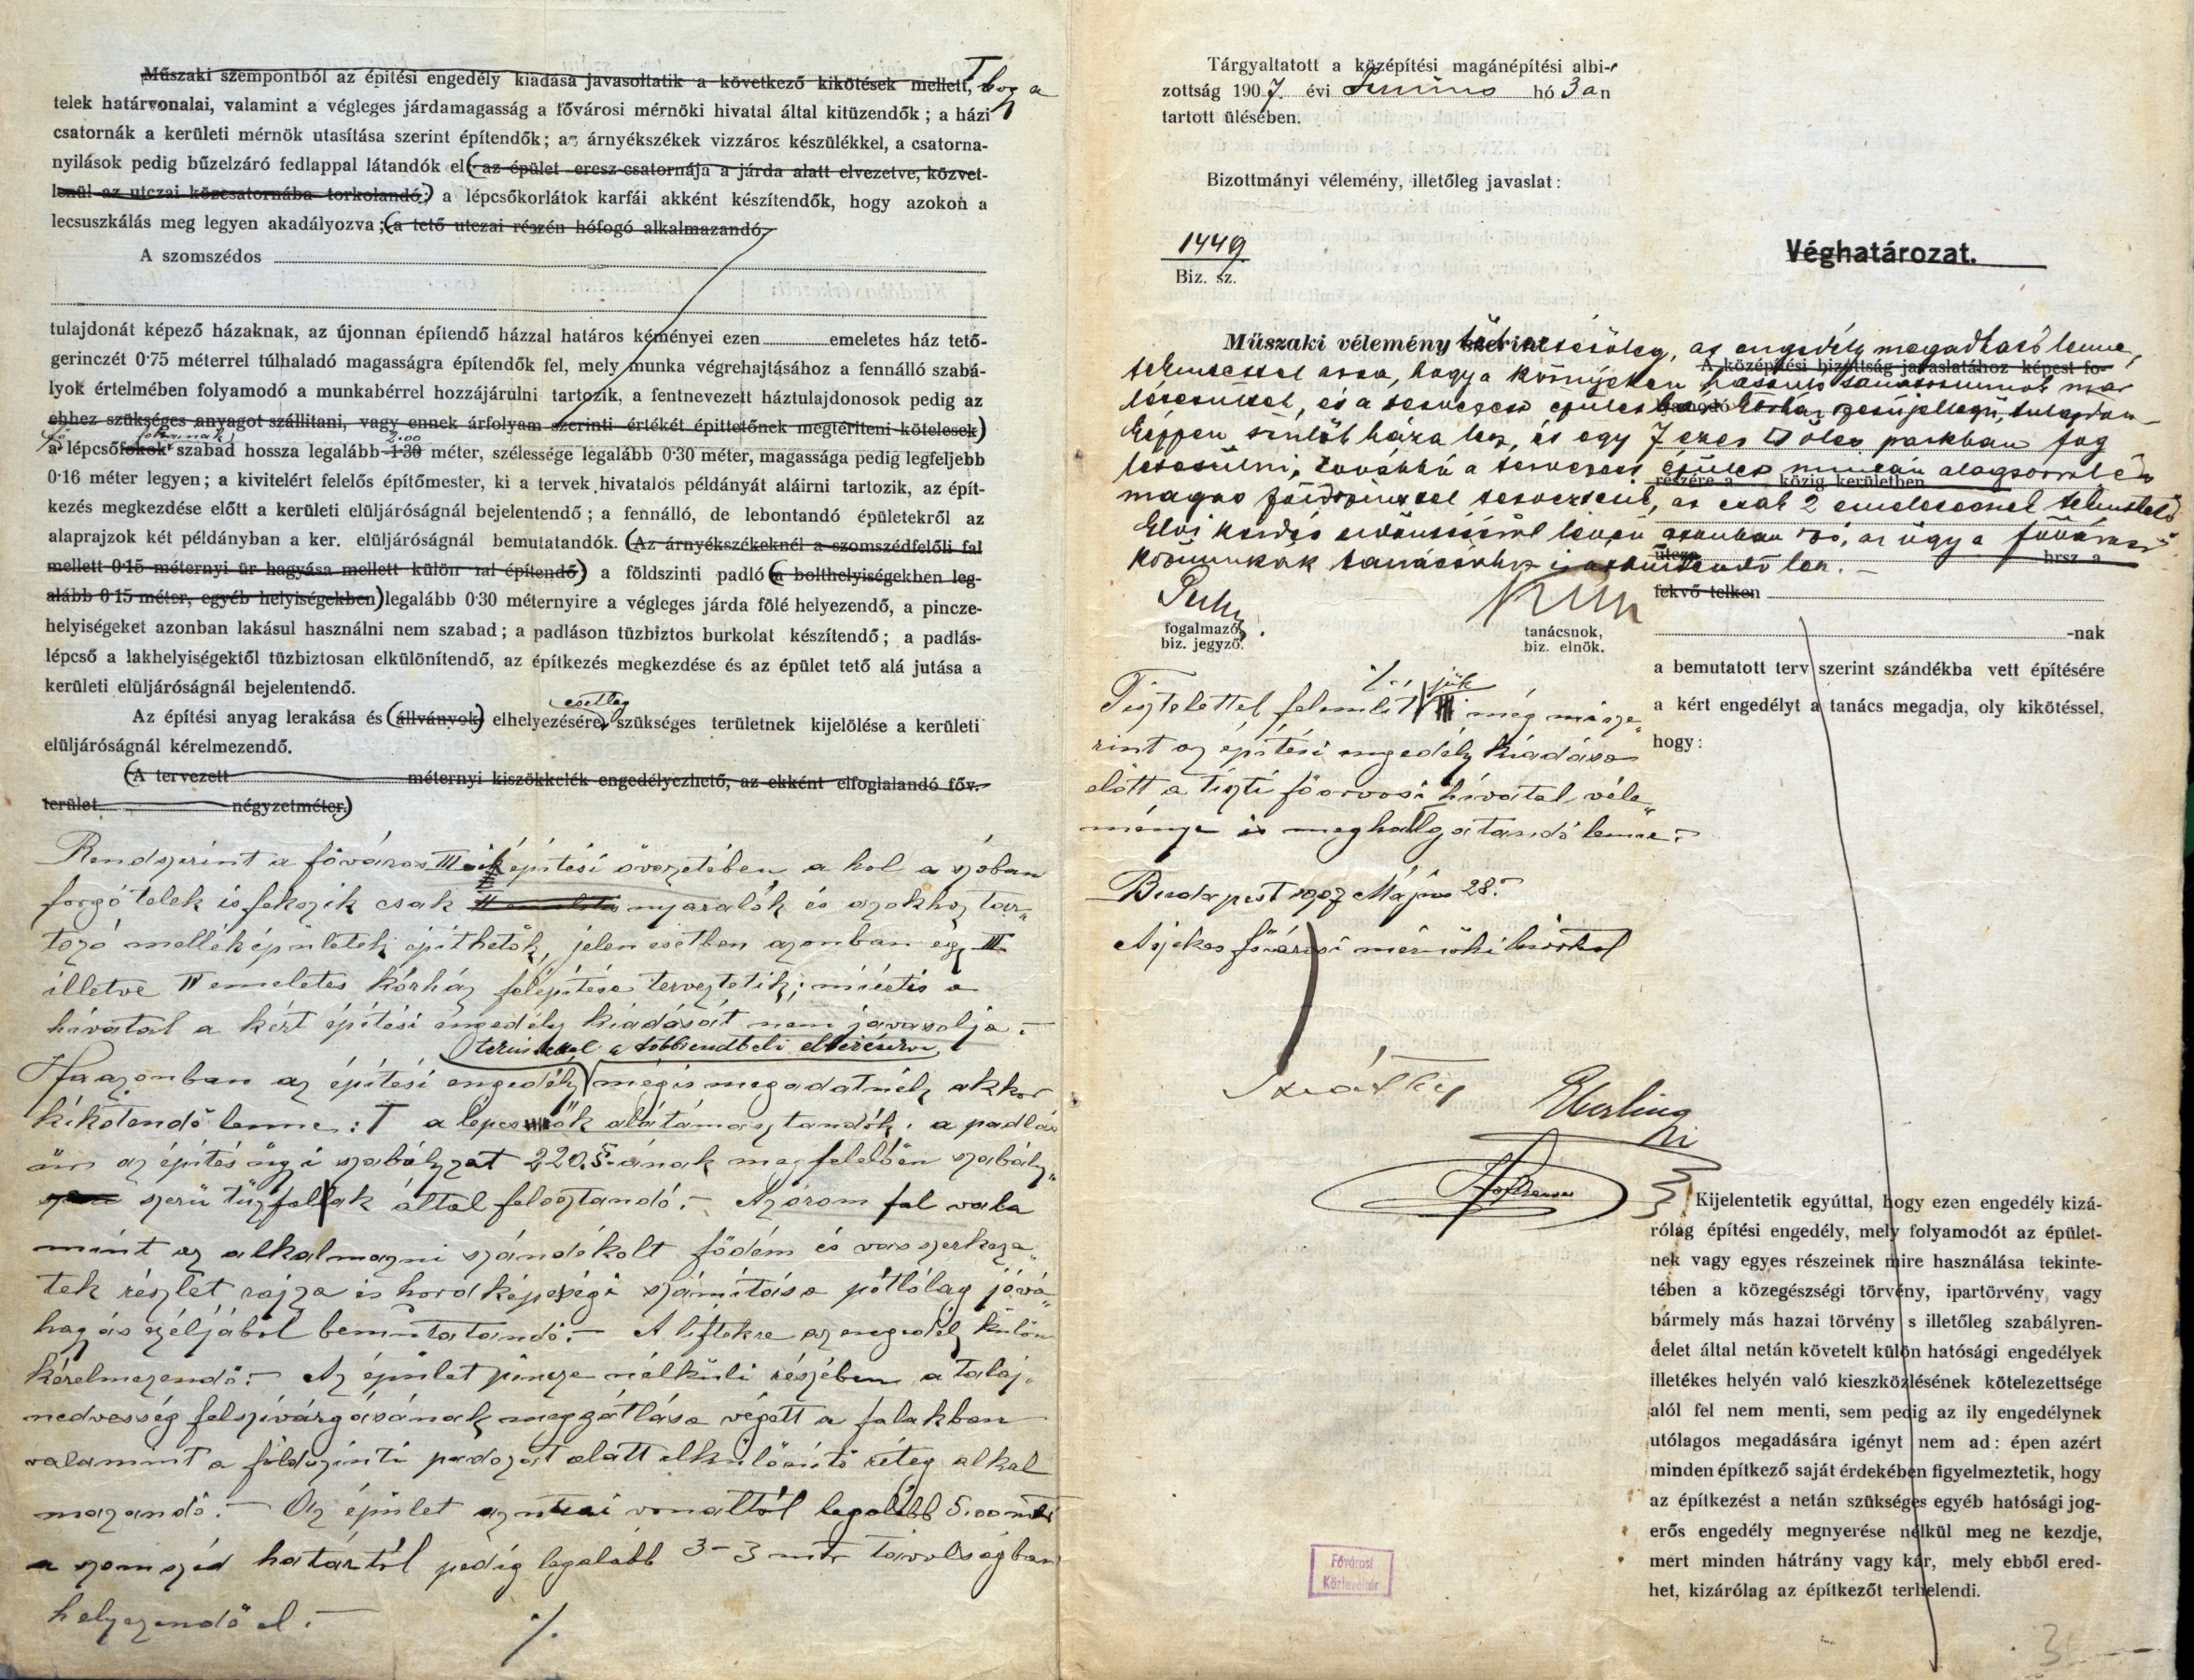 Műszaki szempontból az építési engedély kiadása javasoltatik a következő kikötések mellett, hogy a
telek határvonalai, valamint a végleges járdamagasság a fővárosi mérnöki hivatal által kitüzendők; a házi
csatornák a kerületi mérnök utasítása szerint építendők; az árnyékszékek vizzáros készülékkel, a csatorna-
nyilások pedig bűzelzáró fedlappal látandók el (az épület eresz-csatornája a járda alatt elvezetve, közvet-
lenül az utczai közcsatornába torkolandó;) a lépcsőkorlátok karfái akként készítendők, hogy azokon a
lecsuszkálás meg legyen akadályozva; (a tető utczai részén hófogó alkalmazandó,
A szomszédos
tulajdonát képező házaknak, az újonnan építendő házzal határos kéményei ezen emeletes ház tető-
gerinczét 0·75 méterrel túlhaladó magasságra építendők fel, mely munka végrehajtásához a fennálló szabá-
lyok értelmében folyamodó a munkabérrel hozzájárulni tartozik, a fentnevezett háztulajdonosok pedig az
ehhez szükséges anyagot szállitani, vagy ennek árfolyam szerinti értékét épittetőnek megtéríteni kötelesek)
2.00
a lépcsőfokok szabad hossza legalább 1·30 méter, szélessége legalább 0·30 méter, magassága pedig legfeljebb
0·16 méter legyen; a kivitelért felelős építőmester, ki a tervek hivatalos példányát aláirni tartozik, az épít-
kezés megkezdése előtt a kerületi elüljáróságnál bejelentendő; a fennálló, de lebontandó épületekről az
alaprajzok két példányban a ker. elüljáróságnál bemutatandók. (Az árnyékszékeknél a szomszédfelőli fal
mellett 0·15 méternyi ür hagyása mellett külön fal építendő) a földszinti padló (a bolthelyiségekben leg-
alább 0·15 méter, egyéb helyiségekben) legalább 0·30 méternyire a végleges járda fölé helyezendő, a pincze-
helyiségeket azonban lakásul használni nem szabad; a padláson tüzbiztos burkolat készítendő; a padlás-
lépcső a lakhelyiségektől tüzbiztosan elkülönítendő, az építkezés megkezdése és az épület tető alá jutása a
kerületi elüljáróságnál bejelentendő.
esetleg
Az építési anyag lerakása és (állványok) elhelyezésére szükséges területnek kijelölése a kerületi
elüljáróságnál kérelmezendő.
(A tervezett méternyi kiszökkelék engedélyezhető, az ekként elfoglalandó főv.
terület négyzetméter.)
Rendszerint a főváros III ik építési övezetében a hol a szóban
forgó telek is fekszik csak nyaralók és azokhoz tar„
tozó melléképületek építhetők, jelen esetben azonban egy III
illetve II emeletes kórház felépítése terveztetik; miértis a
hivatal a kért építési engedély kiadását nem javasolja.–
Ha azonban az építési engedély mégis megadatnék akkor
kikötendő lenne: a lépcsők alátámasztandók, a padlás
űr az építésügyi szabályzat 220.§-ának megfelelően szabály„
szerü tűzfalak által felosztandó.– Az órom fal vala
mint az alkalmazni szándékolt födém és vasszerkeze„
tek részlet rajza és hordképességi számítása pótlólag jóvá„
hagyás czéljából bemutatandó.– A liftekre az engedély külön
kérelmezendő.– Az épület pincze nélküli részében a talaj„
nedvesség felszívárgásának meggátlása végett a falakban
valamint a földszinti padozat alatt elkülönítő réteg alkal
mazandó.– Az épület az utcai vonaltól legalább 5.00 mtr
a szomszéd határtól pedig legalább 3–3 mtr távolságban
helyezendő el.–
./.
Tárgyaltatott a középítési magánépítési albi-
zottság 1907. évi Június hó 3 án
tartott ülésében.
Bizottmányi vélemény, illetőleg javaslat:
1449
Biz. sz.
Műszaki vélemény az engedély megadható lenne,
tekintettel arra, hogy a környéken hasonló már
létesültek, és a tervezett épület
képpen szülőháza lesz, és egy 7 ezer öles parkban fog
létesülni, továbbá a tervezett épület alagsorral és
magas földszinttel terveztetik, és csak 2 emeletesnek tekinthető
Elvi kérdés eldöntéséről lévén azonban szó, az ügy a fővárosi
közmunkák tanácsához lesz.–
fogalmazó,
biz. jegyző.
tanácsnok,
biz. elnök.
Tisztelettel felemlítjük még misze„
rint az építési engedély kiadása
előtt a tiszti főorvosi hivatal véle„
ménye is meghallgatandó lenne.–
Budapest 1907 Május 28.–
A székes fővárosi mérnöki hivatal
Eberling
Véghatározat.
A középítési bizottság javaslatához képest fo-
részére a közig. kerületben
utcza
hrsz. a
fekvő telken
-nak
a bemutatott terv szerint szándékba vett építésére
a kért engedélyt a tanács megadja, oly kikötéssel,
hogy:
Kijelentetik egyúttal, hogy ezen engedély kizá-
rólag építési engedély, mely folyamodót az épület-
nek vagy egyes részeinek mire használása tekinte-
tében a közegészségi törvény, ipartörvény, vagy
bármely más hazai törvény s illetőleg szabályren-
delet által netán követelt külön hatósági engedélyek
illetékes helyén való kieszközlésének kötelezettsége
alól fel nem menti, sem pedig az ily engedélynek
utólagos megadására igényt nem ad: épen azért
minden építkező saját érdekében figyelmeztetik, hogy
az építkezést a netán szükséges egyéb hatósági jog-
erős engedély megnyerése nélkül meg ne kezdje,
mert minden hátrány vagy kár, mely ebből ered-
het, kizárólag az építkezőt terhelendi.
Fővárosi
Közlevéltár
3